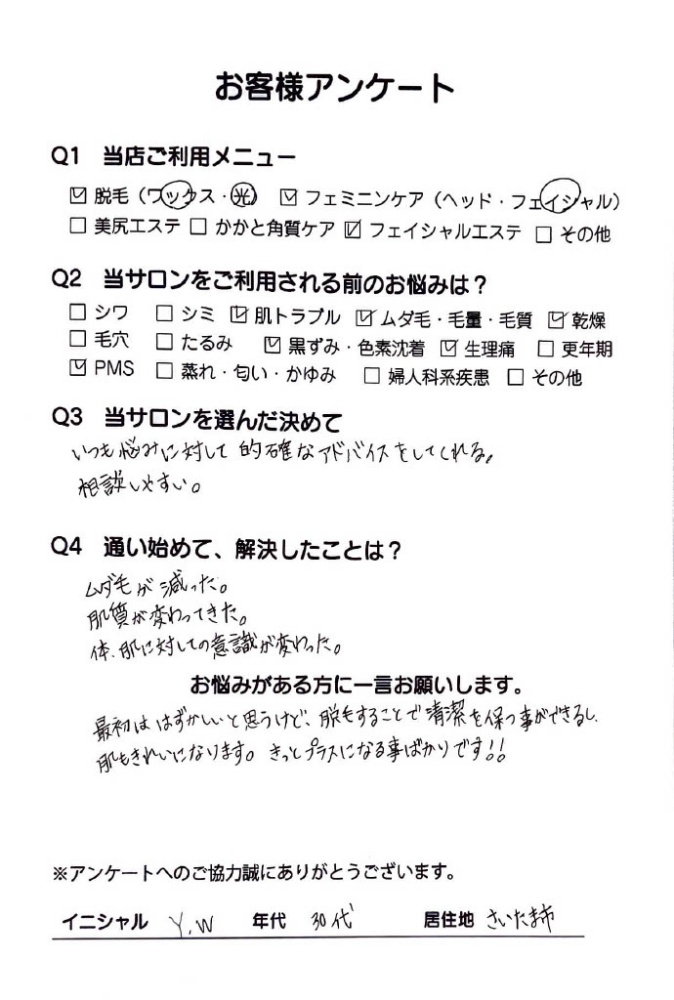 お客様アンケート
Q1 当店ご利用メニュー
☑ 脱毛（ワックス・光） ☑ フェミニンケア（ヘッド・フェイシャル）
□ 美尻エステ □ かかと角質ケア ☑ フェイシャルエステ □ その他
Q2 当サロンをご利用される前のお悩みは？
□ シワ □ シミ ☑ 肌トラブル ☑ ムダ毛・毛量・毛質 ☑ 乾燥
□ 毛穴 □ たるみ ☑ 黒ずみ・色素沈着 ☑ 生理痛 □ 更年期
☑ PMS □ 蒸れ・匂い・かゆみ □ 婦人科系疾患 □ その他
Q3 当サロンを選んだ決めて
いつも悩みに対して的確なアドバイスをしてくれる。
相談しやすい。
Q4 通い始めて、解決したことは？
ムダ毛が減った。
肌質が変わってきた。
体、肌に対しての意識が変わった。
お悩みがある方に一言お願いします。
最初ははずかしいと思うけど、脱毛することで清潔を保つ事ができるし、
肌もきれいになります。きっとプラスになる事ばかりです!!
※アンケートへのご協力誠にありがとうございます。
イニシャル Y.W 年代 30代 居住地 さいたま市